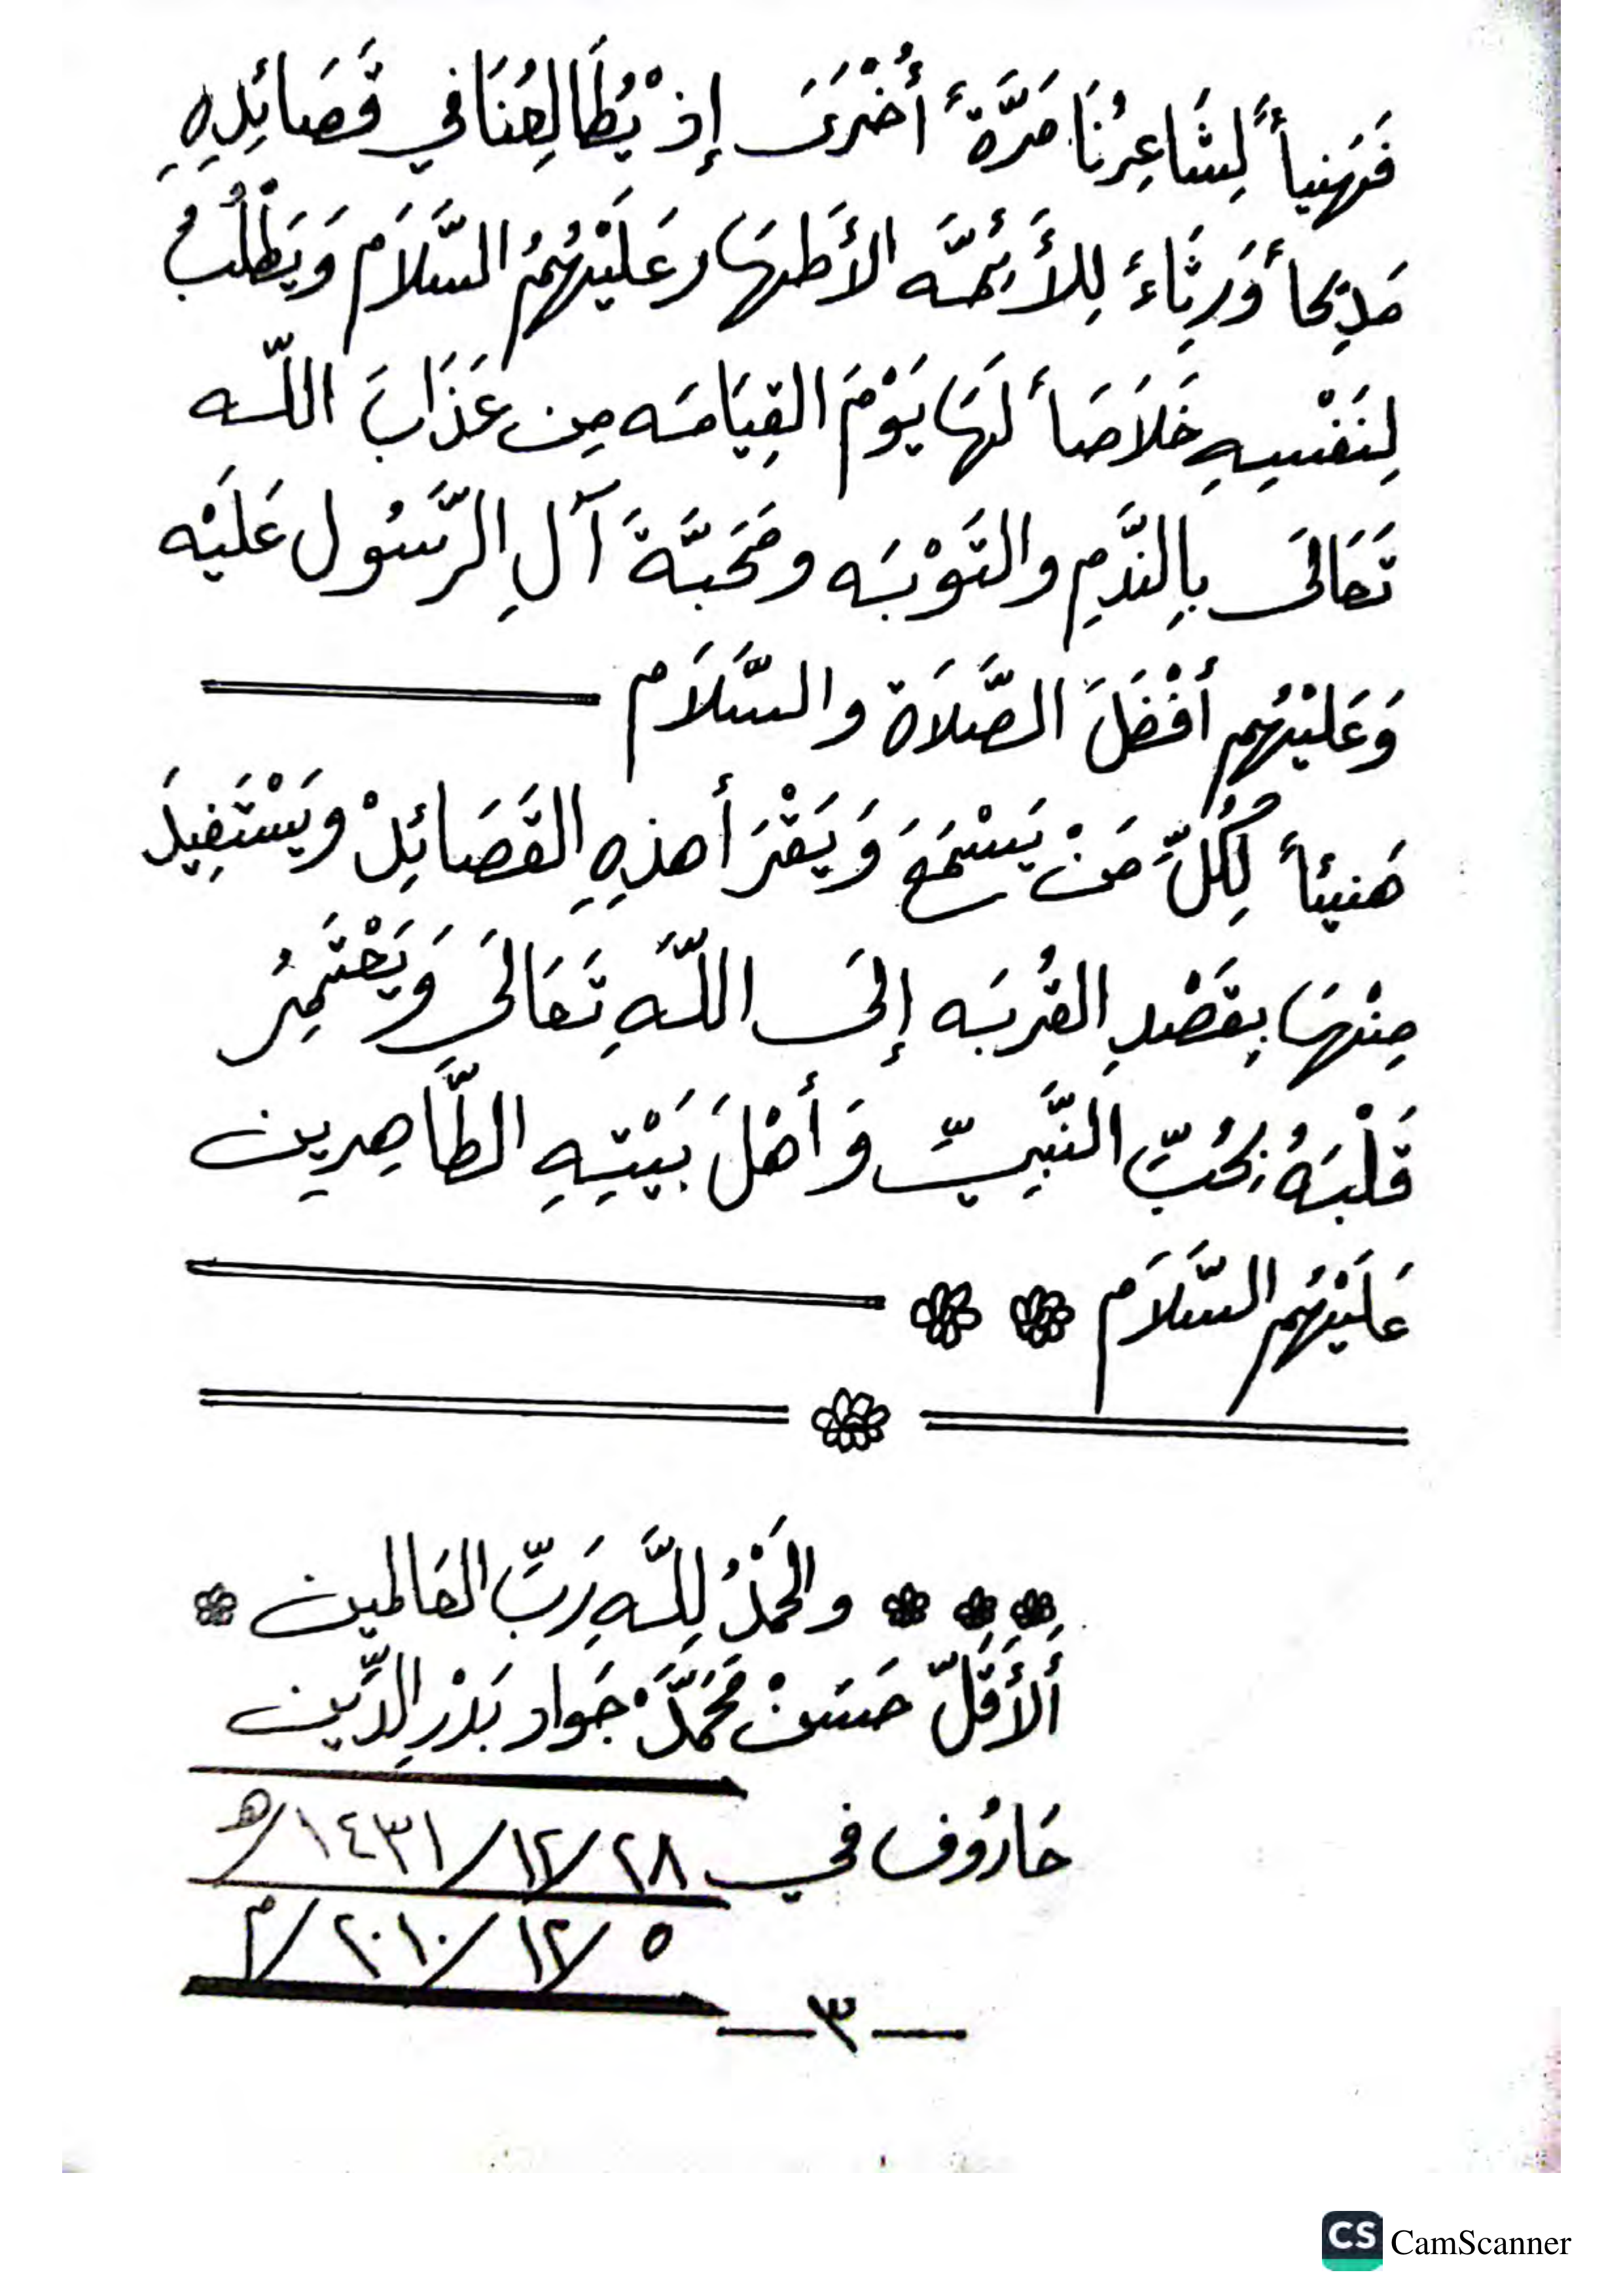 فَهَنِيأً لِشَاعِرُنَا مَرَّةً أُخْرَىَ إِذْ يُطَالِعُنَا في قَصَائِدِهِ
مَدِيحَاً وَرِثَاءً لِلأَئِمَّه الأَطهَار عَلَيْهُمُ السَّلاَم وَيَطْلُبُ
لِنَفْسِهِ خَلاَصَاً لَهَا يَوْمَ القِيَامَه مِن عَذَابَ اللّه
تَعَالَىَ بِالنَّدَمِ والتَوْبَه ومَحَبَّةَ آلِ الرَّسُول عَلَيْه
وَعَلَيْهُم أَفْضَلَ الصَّلاَة والسَّلاَم
هَنيئاً لِكُلِّ مَنْ يَسْمَعَ وَيَقْرَأ هذِهِ القَصَائِدْ ويَسْتَفِيدَ
مِنْهَا بِقَصْدِ القُربَه إلَىَ اللَّهِ تَعَالَىَ وَيَعْتَمِرُ
قَلْبَهُ بِحُبِّ النَّبِيِّ وَأَهْلَ بَيْتِهِ الطَّاهِرِين
عَلَيْهُم السَّلاَم
والحَمْدُ لِلَّهِ رَبِّ العَالمين
أَلأَقَلّ حَسَنْ مُحَمَّدْ جَواد بَدْرِ الدِّين
حَارُوف في ٢٨/١٢/١٤٣١/هـ
٥/١٢/٢٠١٠/م
—٣—
CS CamScanner